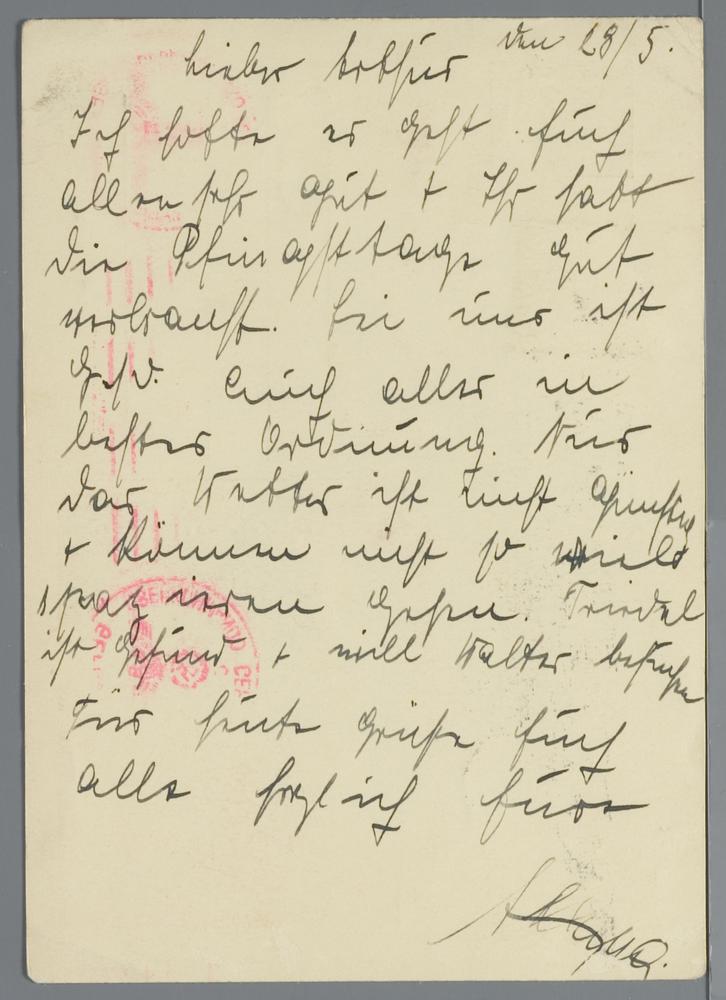 den 28/5.
Lieber Arthur
Ich hoffe es geht Euch
allen sehr gut + Ihr habt
die Pfingsttage gut
verbracht. Bei uns ist
Gesd. auch alles in
bester Ordnung. Nur
das Wetter ist nicht günstig
+ können nicht so viel
spazieren gehen. Friedel
ist gesund + will Walter besuchen
Für heute grüße Euch
alle herzlich Eure